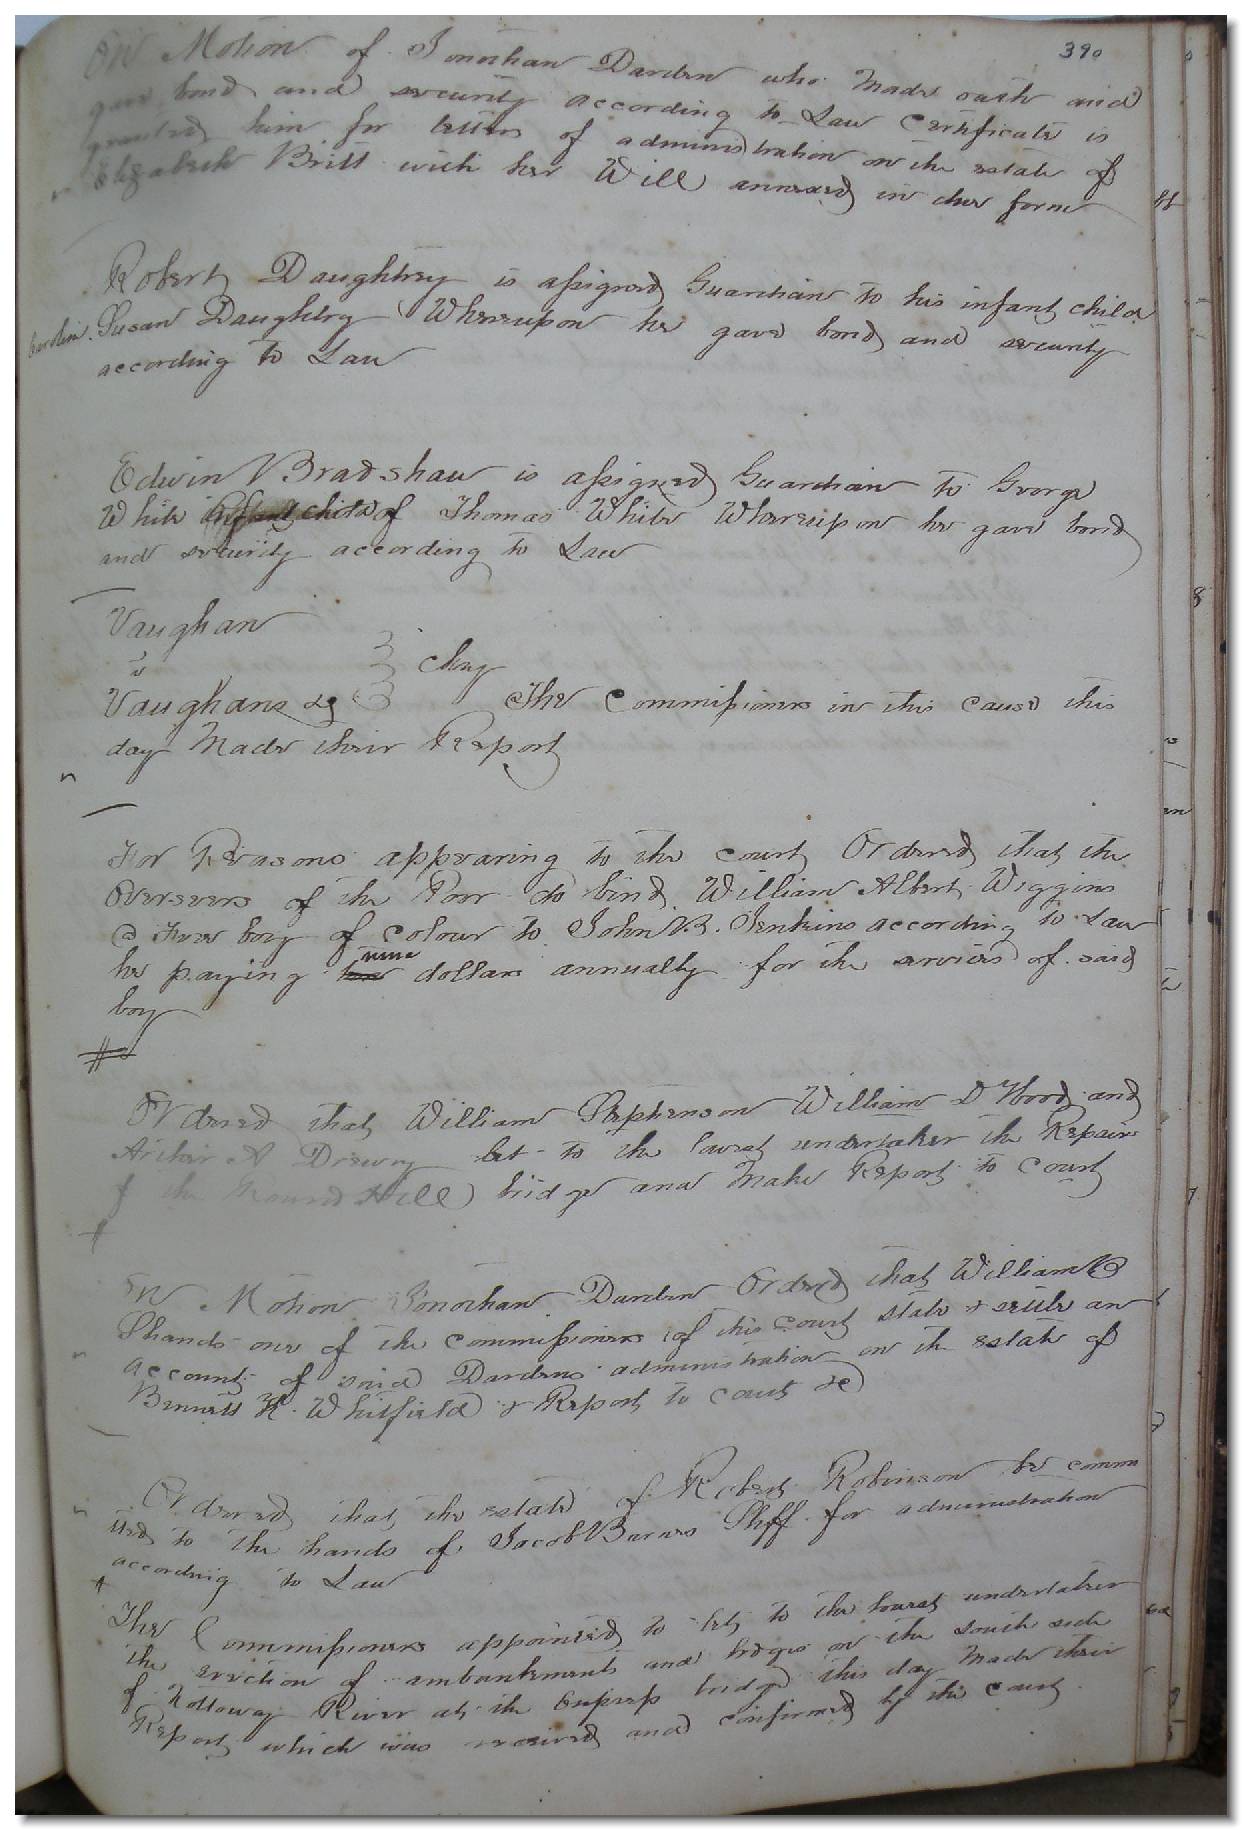 390
On Motion of Jonathan Darden who made oath and
gave bond and security according to Law Certificate is
granted him for letters of administration on the estate of
Elizabeth Britt with her Will annexed in due form
Robert Daughtrey is assigned Guardian to his infant child
Susan Daughtry Whereupon he gave bond and security
according to Law
Edwin Bradshaw is assigned Guardian to George
White infant child of Thomas White Whereupon he gave bond
and security according to Law
Vaughan
vs
Vaughans &c } chy
The Commissioners in this cause this
day Made their Report
For Reasons appearing to the court Ordered that the
Overseers of the Poor do bind William Albert Wiggins
a Free boy of colour to John B. Jenkins according to Law
nine
he paying dollars annually for the services of said
boy
Ordered that William Stephenson William D Hood and
Archer A Drewry let to the lowest undertaker the Repairs
of the Round Hill bridge and Make Report to Court
On Motion Jonathan Darden Ordered that William B
Shands one of the commissioners of this Court state & settle an
account of said Dardens administration on the estate of
Bennett K. Whitfield & Report to court &c
Ordered that the estate of Robert Robinson be comm
itted to the hands of Jacob Barnes Shff for administration
according to Law
The Commissioners appointed to let to the lowest undertaker
the erection of ambankments and bridges on the South side
of Nottoway River at the Cypress bridge this day Made their
Report which was received and confirmed by the Court